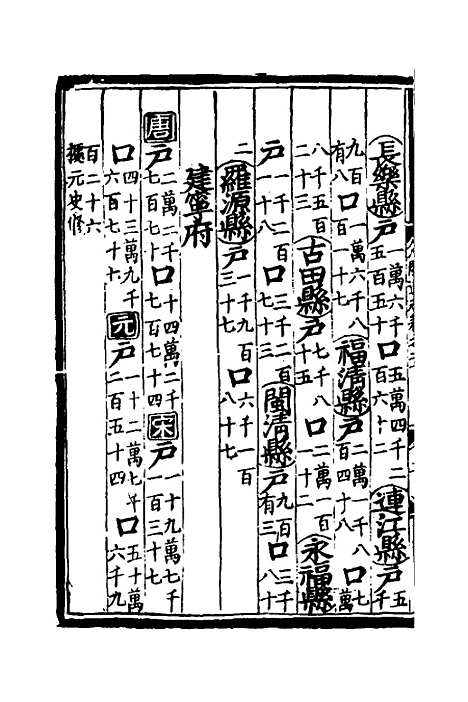 長樂縣戶一萬六千五百五十口五萬四千二百六十二連江縣戶五千
九百有八口一萬六千八百一十七福清縣戶二萬一千八百四十八口七萬
八千五百二十三古田縣戶七千八十五口二萬一百二十二永福縣
戶一千二百一十八口三千二百七十三閩清縣戶九百有三口三千八十
二羅源縣戶一千九百三十七口六千一百八十七
建寧府
唐戶二萬二千七百七十口一十四萬二千七百七十四宋戶一十九萬七千一百三十七
口四十三萬九千六百七十七元戶一十二萬七千二百五十四口五十萬六千九
百二十六據元史修